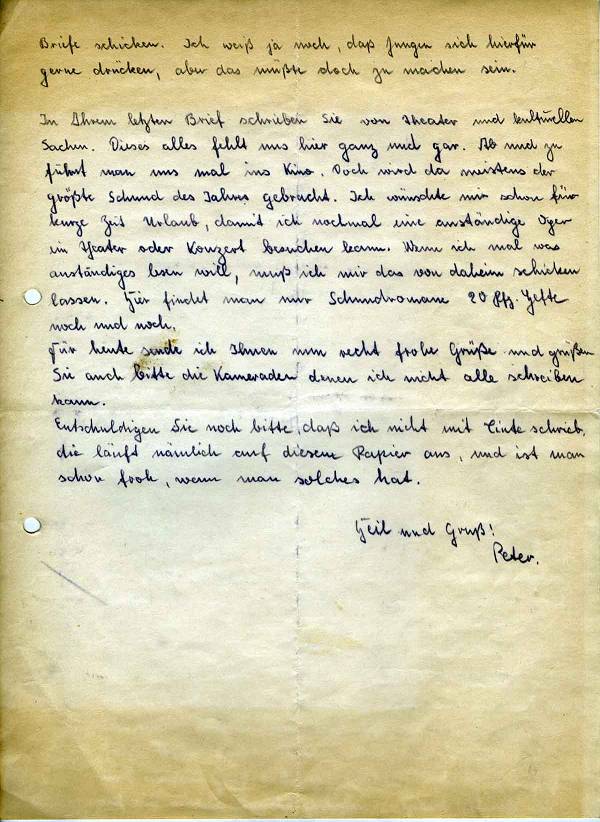 Briefe schicken. Ich weiß ja noch, daß Jungen sich hierfür
gerne drücken, aber das müßte doch zu machen sein.
In Ihrem letzten Brief schrieben Sie von Theater und kulturellen
Sachen. Dieses alles fehlt uns hier ganz und gar. Ab und zu
führt man uns mal ins Kino. Doch wird da meistens der
größte Schund des Jahres gebracht. Ich wünschte mir schon für
kurze Zeit Urlaub, damit ich nochmal eine anständige Oper
im Theater oder Konzert besuchen kann. Wenn ich mal was
anständiges lesen will, muß ich mir das von daheim schicken
lassen. Hier findet man nur Schundromane 20 Pfg. Hefte
noch und noch.
Für heute sende ich Ihnen nun recht frohe Grüße und grüßen
Sie auch bitte die Kameraden denen ich nicht alle schreiben
kann.
Entschuldigen Sie noch bitte, daß ich nicht mit Tinte schrieb,
die läuft nämlich auf diesem Papier aus, und ist man
schon froh, wenn man solches hat.
Heil und Gruß!
Peter.